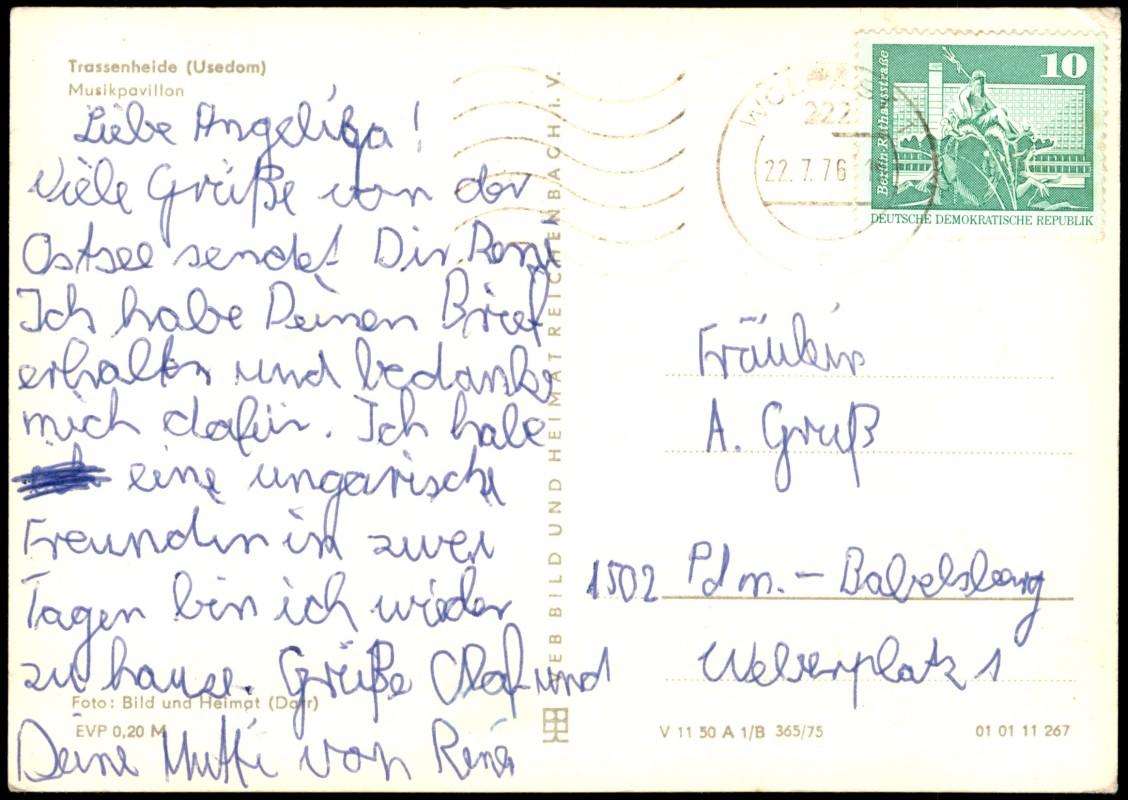 Trassenheide (Usedom)
Musikpavillon
Liebe Angelika!
Viele Grüße von der
Ostsee sendet Dir René
Ich habe Deinen Brief
erhalten und bedanke
mich dafür. Ich habe
eine ungarische
Freundin in zwei
Tagen bin ich wieder
zu hause. Grüße Olaf und
Deine Mutti von René
Foto: Bild und Heimat (Dorr)
EVP 0,20 M
VEB BILD UND HEIMAT REICHENBACH I. V.
WOLGAST
222
22.7.76
Berlin-Rathausstraße
10
DEUTSCHE DEMOKRATISCHE REPUBLIK
Fräulein
A. Gruß
1502 Pdm. – Babelsberg
Weberplatz 1
V 11 50 A 1/B 365/75
01 01 11 267